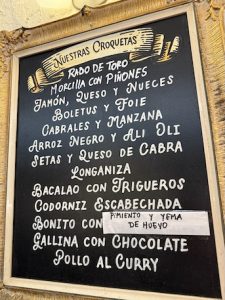 Nuestras Croquetas
Rabo de Toro
Morcilla con Piñones
Jamón, Queso y Nueces
Boletus y Foie
Cabrales y Manzana
Arroz Negro y Ali Oli
Setas y Queso de Cabra
Longaniza
Bacalao con Trigueros
Codorniz Escabechada
Bonito con PIMIENTO Y YEMA
DE HUEVO
Gallina con Chocolate
Pollo al Curry